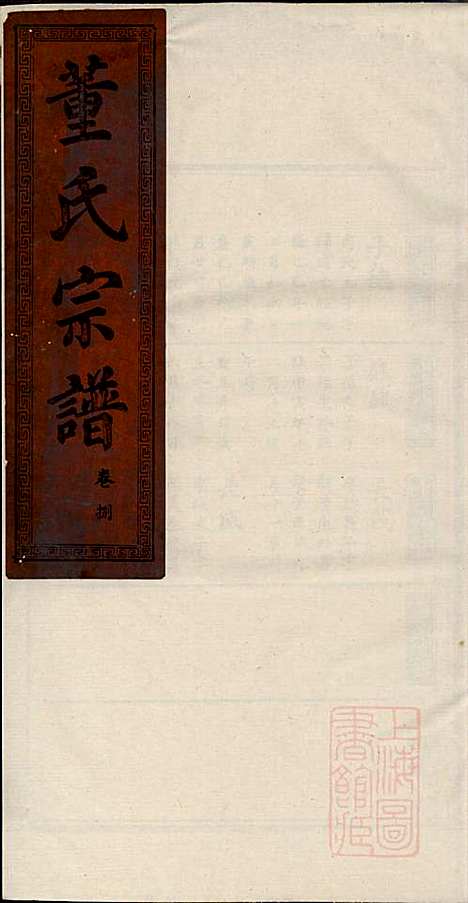 董氏宗譜
卷捌
上海圖
書館藏